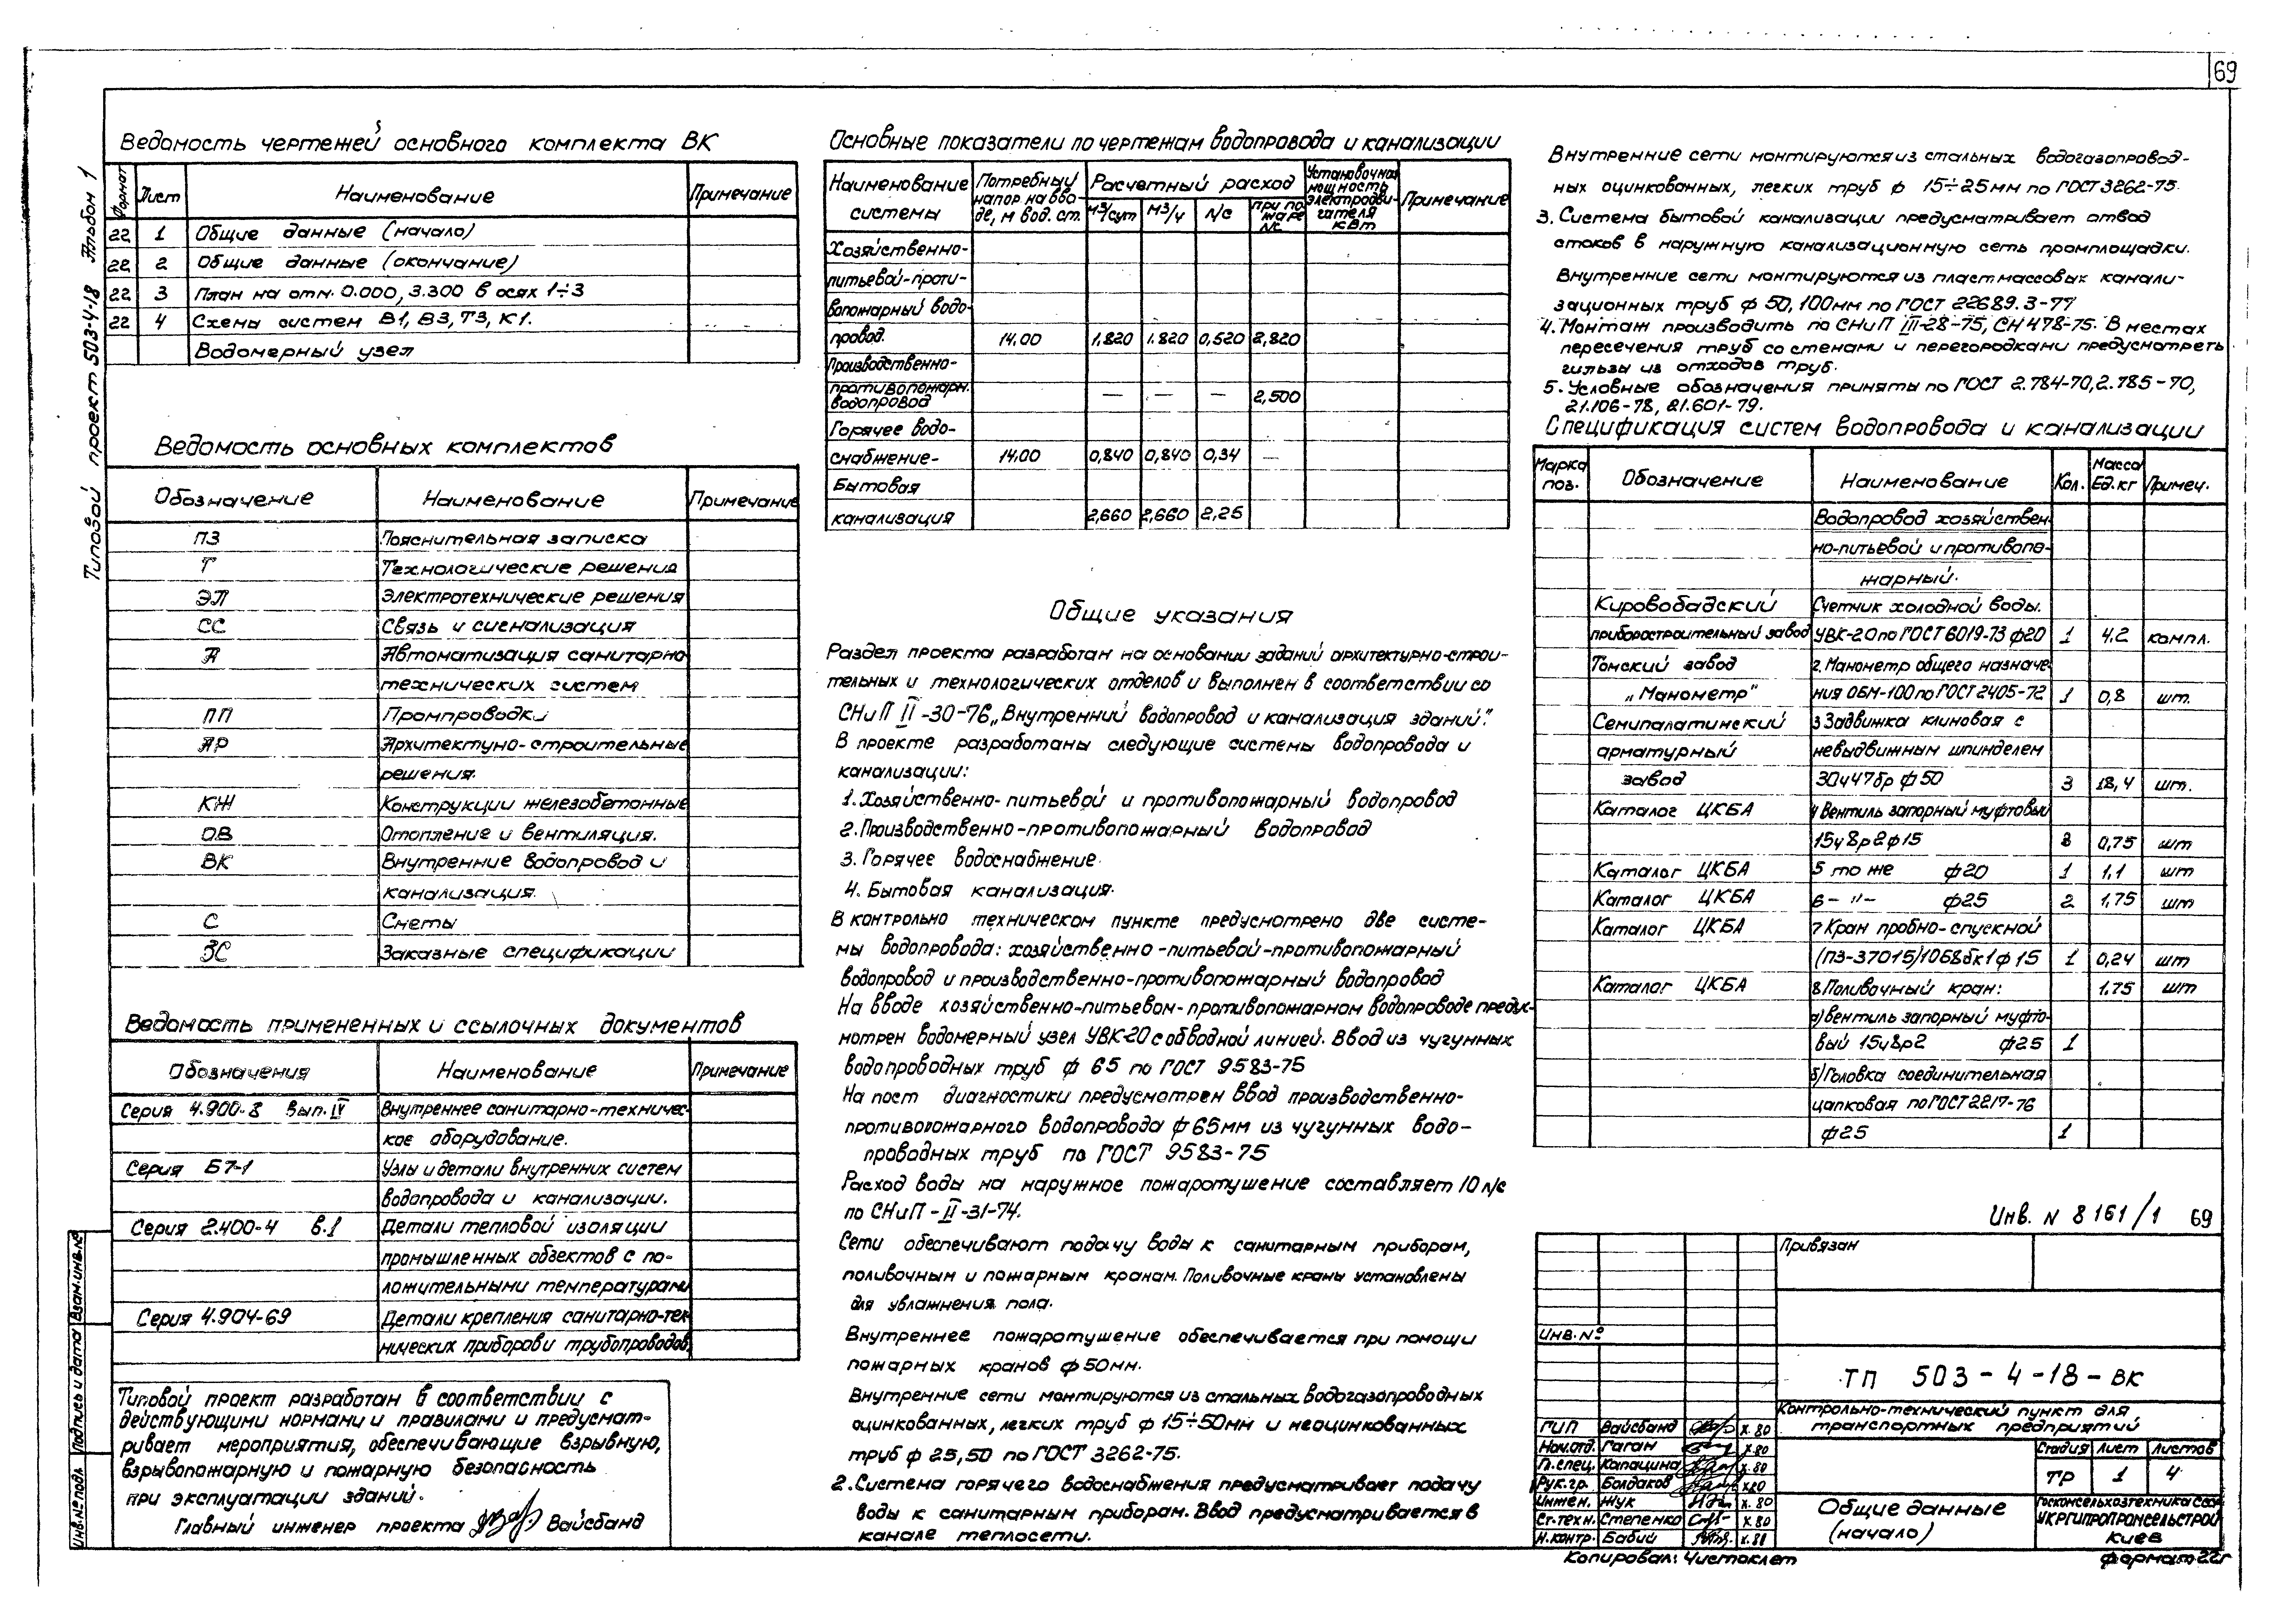 69
Типовой проект 503-4-18 Альбом 1
Ведомость чертежей основного комплекта ВК
Формат Лист Наименование Примечание
22 1 Общие данные (начало)
22 2 Общие данные (окончание)
22 3 План на отм. 0.000, 3.300 в осях 1÷3
22 4 Схемы систем В1, В3, Т3, К1.
Водомерный узел
Ведомость основных комплектов
Обозначение Наименование Примечание
ПЗ Пояснительная записка
Т Технологические решения
ЭЛ Электротехнические решения
СС Связь и сигнализация
А Автоматизация санитарно
технических систем
ПП Промпроводки
АР Архитектуно-строительные
решения.
КЖ Конструкции железобетонные
ОВ Отопление и вентиляция.
ВК Внутренние водопровод и
канализация.
С Сметы
ЗС Заказные спецификации
Ведомость примененных и ссылочных документов
Обозначения Наименование Примечание
Серия 4.900-8 Вып. IV Внутреннее санитарно-техничес-
кое оборудование.
Серия Б7-1 Узлы и детали внутренних систем
водопровода и канализации.
Серия 2.400-4 в.1 Детали тепловой изоляции
промышленных объектов с по-
ложительными температурами
Серия 4.904-69 Детали крепления санитарно-тех-
нических приборов и трубопроводов
Типовой проект разработан в соответствии с
действующими нормами и правилами и предусмат-
ривает мероприятия, обеспечивающие взрывную,
взрывопожарную и пожарную безопасность
при эксплуатации зданий.
Главный инженер проекта Вайсбанд
Инв.№ подл. Подпись и дата Взам.инв.№
Основные показатели по чертежам водопровода и канализации
Наименование системы Потребный напор на вво-де, м вод. ст. Расчетный расход Установочная мощность электродви-гателя кВт Примечание
м³/сут м³/ч л/с при по-жаре л/с
Хозяйственно-
питьевой-проти-
вопожарный водо-
провод. 14.00 1.820 1.820 0,520 2,820
Производственно-
противопожарн.
водопровод — — — 2,500
Горячее водо-
снабжение- 14.00 0,840 0,840 0,34 —
Бытовая
канализация 2,660 2,660 2,25
Общие указания
Раздел проекта разработан на основании заданий архитектурно-строи-
тельных и технологических отделов и выполнен в соответствии со
СНиП II-30-76 „Внутренний водопровод и канализация зданий".
В проекте разработаны следующие системы водопровода и
канализации:
1. Хозяйственно-питьевой и противопожарный водопровод
2. Производственно-противопожарный водопровод
3. Горячее водоснабжение.
4. Бытовая канализация.
В контрольно техническом пункте предусмотрено две систе-
мы водопровода: хозяйственно-питьевой-противопожарный
водопровод и производственно-противопожарный водопровод
На вводе хозяйственно-питьевом-противопожарном водопроводе предус-
мотрен водомерный узел УВК-20 с обводной линией. Ввод из чугунных
водопроводных труб ф 65 по ГОСТ 9583-75
На пост диагностики предусмотрен ввод производственно-
противопожарного водопровода ф 65мм из чугунных водо-
проводных труб по ГОСТ 9583-75
Расход воды на наружное пожаротушение составляет 10 л/с
по СНиП-II-31-74.
Сети обеспечивают подачу воды к санитарным приборам,
поливочным и пожарным кранам. Поливочные краны установлены
для увлажнения пола.
Внутреннее пожаротушение обеспечивается при помощи
пожарных кранов ф 50мм.
Внутренние сети монтируются из стальных водогазопроводных
оцинкованных, легких труб ф 15÷50мм и неоцинкованных
труб ф 25,50 по ГОСТ 3262-75.
2. Система горячего водоснабжения предусматривает подачу
воды к санитарным приборам. Ввод предусматривается в
канале теплосети.
Внутренние сети монтируются из стальных водогазопровод-
ных оцинкованных, легких труб ф 15÷25мм по ГОСТ 3262-75.
3. Система бытовой канализации предусматривает отвод
стоков в наружную канализационную сеть промплощадки.
Внутренние сети монтируются из пластмассовых канали-
зационных труб ф 50,100мм по ГОСТ 22689.3-77
4. Монтаж производить по СНиП III-28-75, СН 478-75. В местах
пересечения труб со стенами и перегородками предусмотреть
гильзы из отходов труб.
5. Условные обозначения приняты по ГОСТ 2.784-70, 2.785-70,
21.106-78, 21.601-79.
Спецификация систем водопровода и канализации
Марка поз. Обозначение Наименование Кол. Масса Ед.кг Примеч.
Водопровод хозяйствен-
но-питьевой и противопо-
жарный.
Кировобадский Счетчик холодной воды.
приборостроительный завод УВК-20 по ГОСТ 6019-73 ф20 1 4.2 компл.
Томский завод 2. Манометр общего назначе-
„Манометр" ния ОБМ-100 по ГОСТ 2405-72 1 0,8 шт.
Семипалатинский 3 Задвижка клиновая с
арматурный невыдвижным шпинделем
завод 30ч47бр ф50 3 18,4 шт.
Каталог ЦКБА 4 Вентиль запорный муфтовый
15ч8р2ф15 8 0,75 шт
Каталог ЦКБА 5 то же ф20 1 1,1 шт
Каталог ЦКБА 6 -"- ф25 2 1,75 шт
Каталог ЦКБА 7 Кран пробно-спускной
(ПЗ-37015)10Б8бк1ф15 1 0,24 шт
Каталог ЦКБА 8. Поливочный кран: 1.75 шт
а) вентиль запорный муфто-
вый 15ч8р2 ф25 1
б) Головка соединительная
цапковая по ГОСТ 2217-76
ф25 1
Инв. N 8161/1 69
Привязан
Инв.№
ТП 503-4-18-ВК
Контрольно-технический пункт для
транспортных предприятий
ГИП Вайсбанд х.80
Нач.отд. Гаган х.80
Гл.спец. Капацина х.80
Рук.гр. Болдаков х.80
Инжен. Жук х.80
Ст.техн. Степенко х.80
Н.контр. Бабий х.80
Стадия Лист Листов
ТР 1 4
Общие данные
(начало)
Госкомсельхозтехника СССР
УКРГИПРОПРОМСЕЛЬСТРОЙ
Киев
Копировал: Чистоклет
Формат 22г